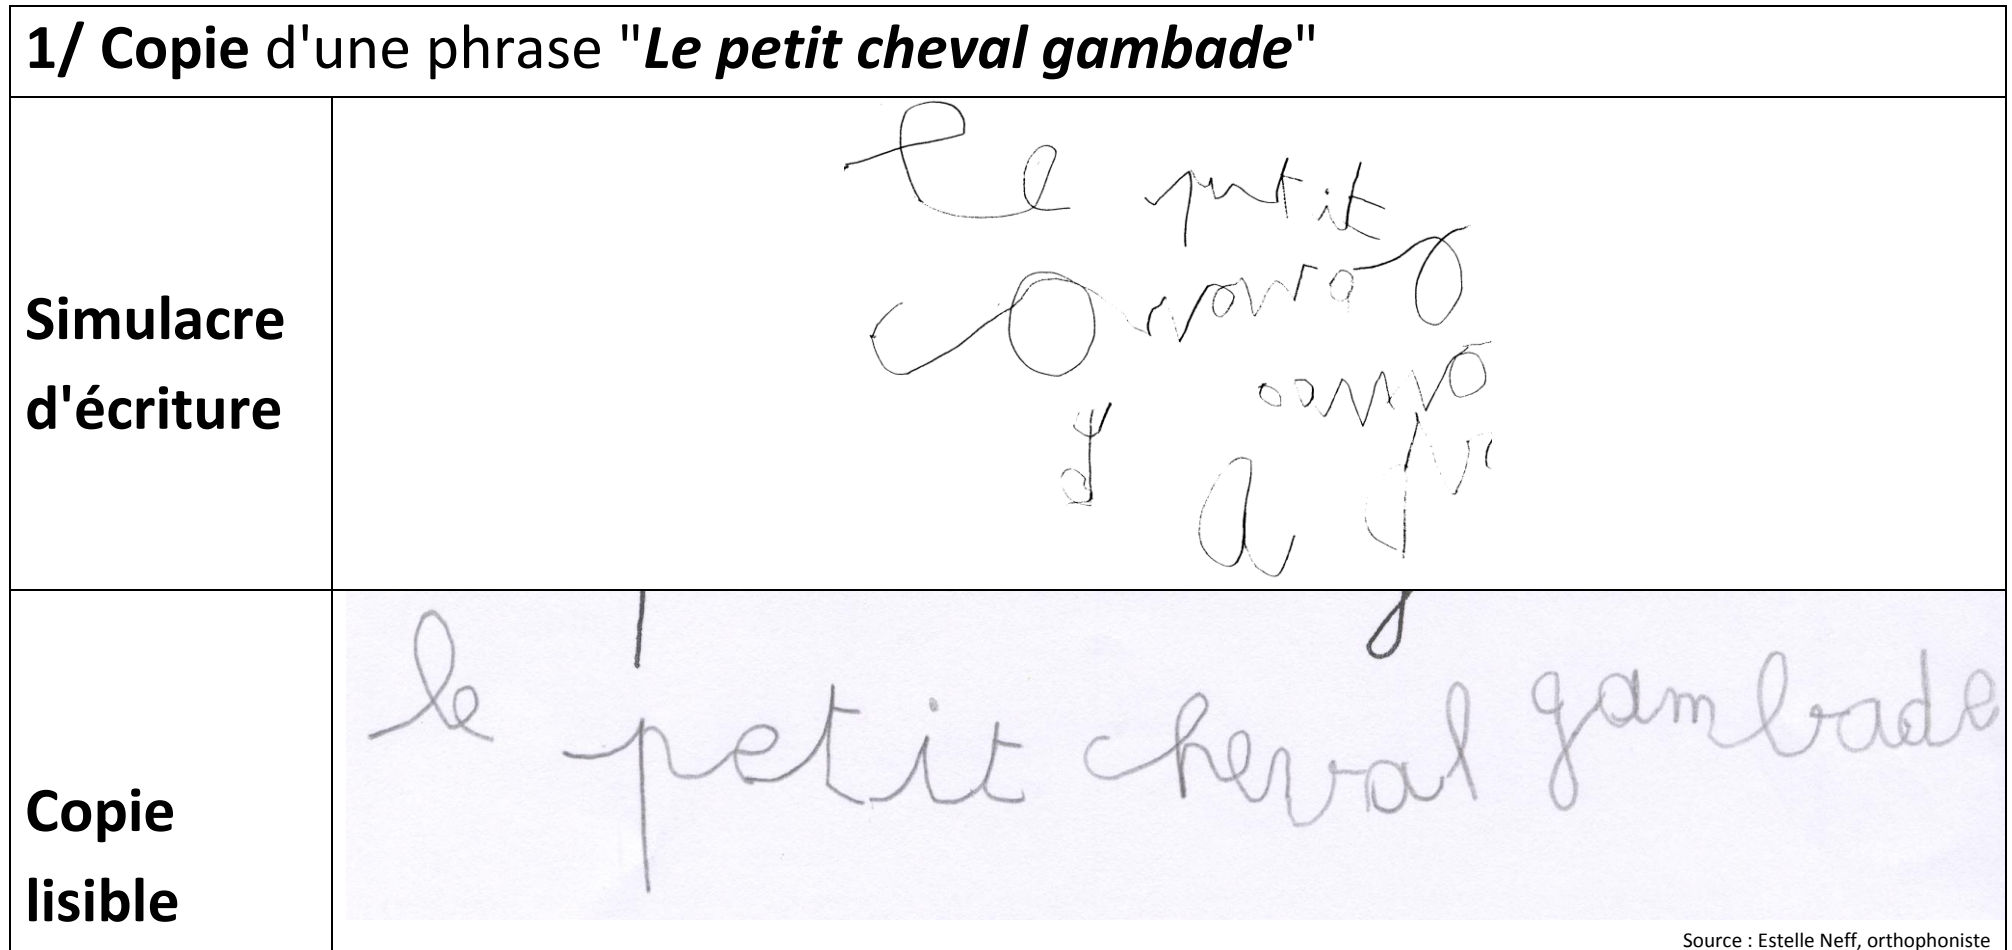 1/ Copie d'une phrase "Le petit cheval gambade"
Simulacre
d'écriture
Le petit
Copie
lisible
le petit cheval gambade
Source : Estelle Neff, orthophoniste